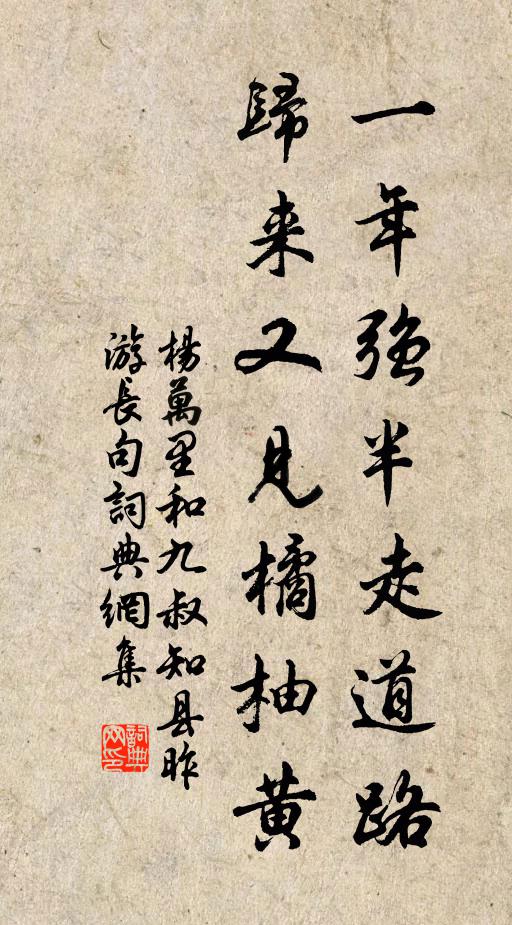 一年強半走道路
歸来又見橘柚黄
楊萬里和九叔知县昨
游長句詞典網集
詞典网印